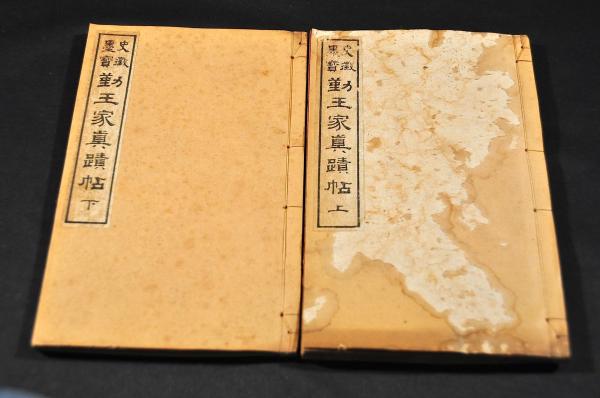 史徴墨寶
勤王家真蹟帖
上
史徴墨寶
勤王家真蹟帖
下